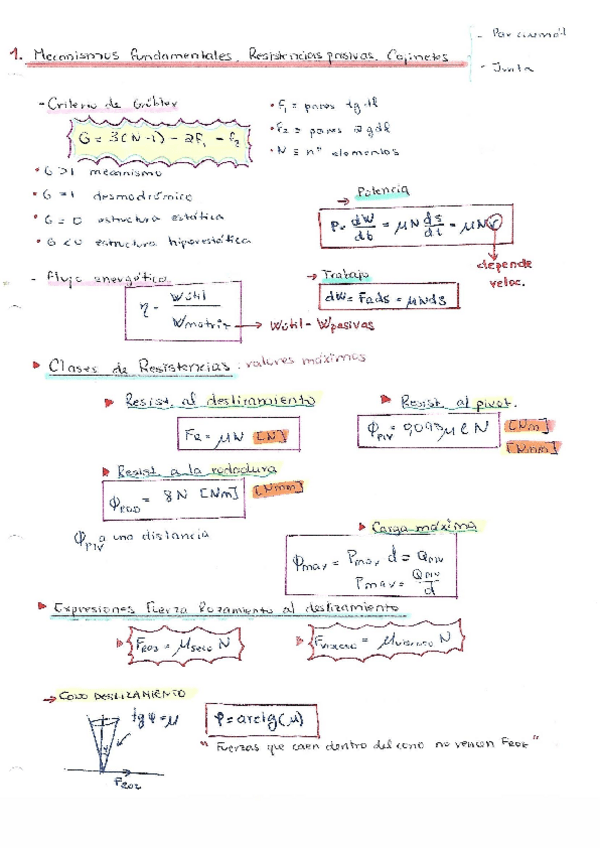 - Par cinemát
- Junta
1. Mecanismos fundamentales. Resistencias pasivas. Cojinetes
- Criterio de Grübler
G = 3(N-1) - 2F₁ - F₂
• F₁ = pares 1gdl
• F₂ = pares 2gdl
• N = nº elementos
• G > 1 mecanismo
• G = 1 desmodrómico
• G = 0 estructura estática
• G < 0 estructura hiperestática
→ Potencia
P = dW/dt = μN ds/dt = μNV
depende veloc.
- Flujo energético
η = Wútil / Wmotriz → Wútil - Wpasivas
→ Trabajo
dW = Fads = μNds
▶ Clases de Resistencias: valores máximos
▶ Resist. al deslizamiento
FR = μN [N]
▶ Resist. al pivot.
ϕPIV = μ e N [Nm]
[Nmm]
▶ Resist a la rodadura
ϕROD = δN [Nm] [Nmm]
ϕPIV a una distancia
▶ Carga máxima
ϕmax = Pmax d = QPIV
Pmax = QPIV / d
▶ Expresiones Fuerza Rozamiento al deslizamiento
▶ FROZ = μseco N
▶ Fviscoso = μviscoso N
→ CONO DESLIZAMIENTO
tg φ = μ
φ = arctg(μ)
FROZ
"Fuerzas que caen dentro del cono no vencen FROZ"